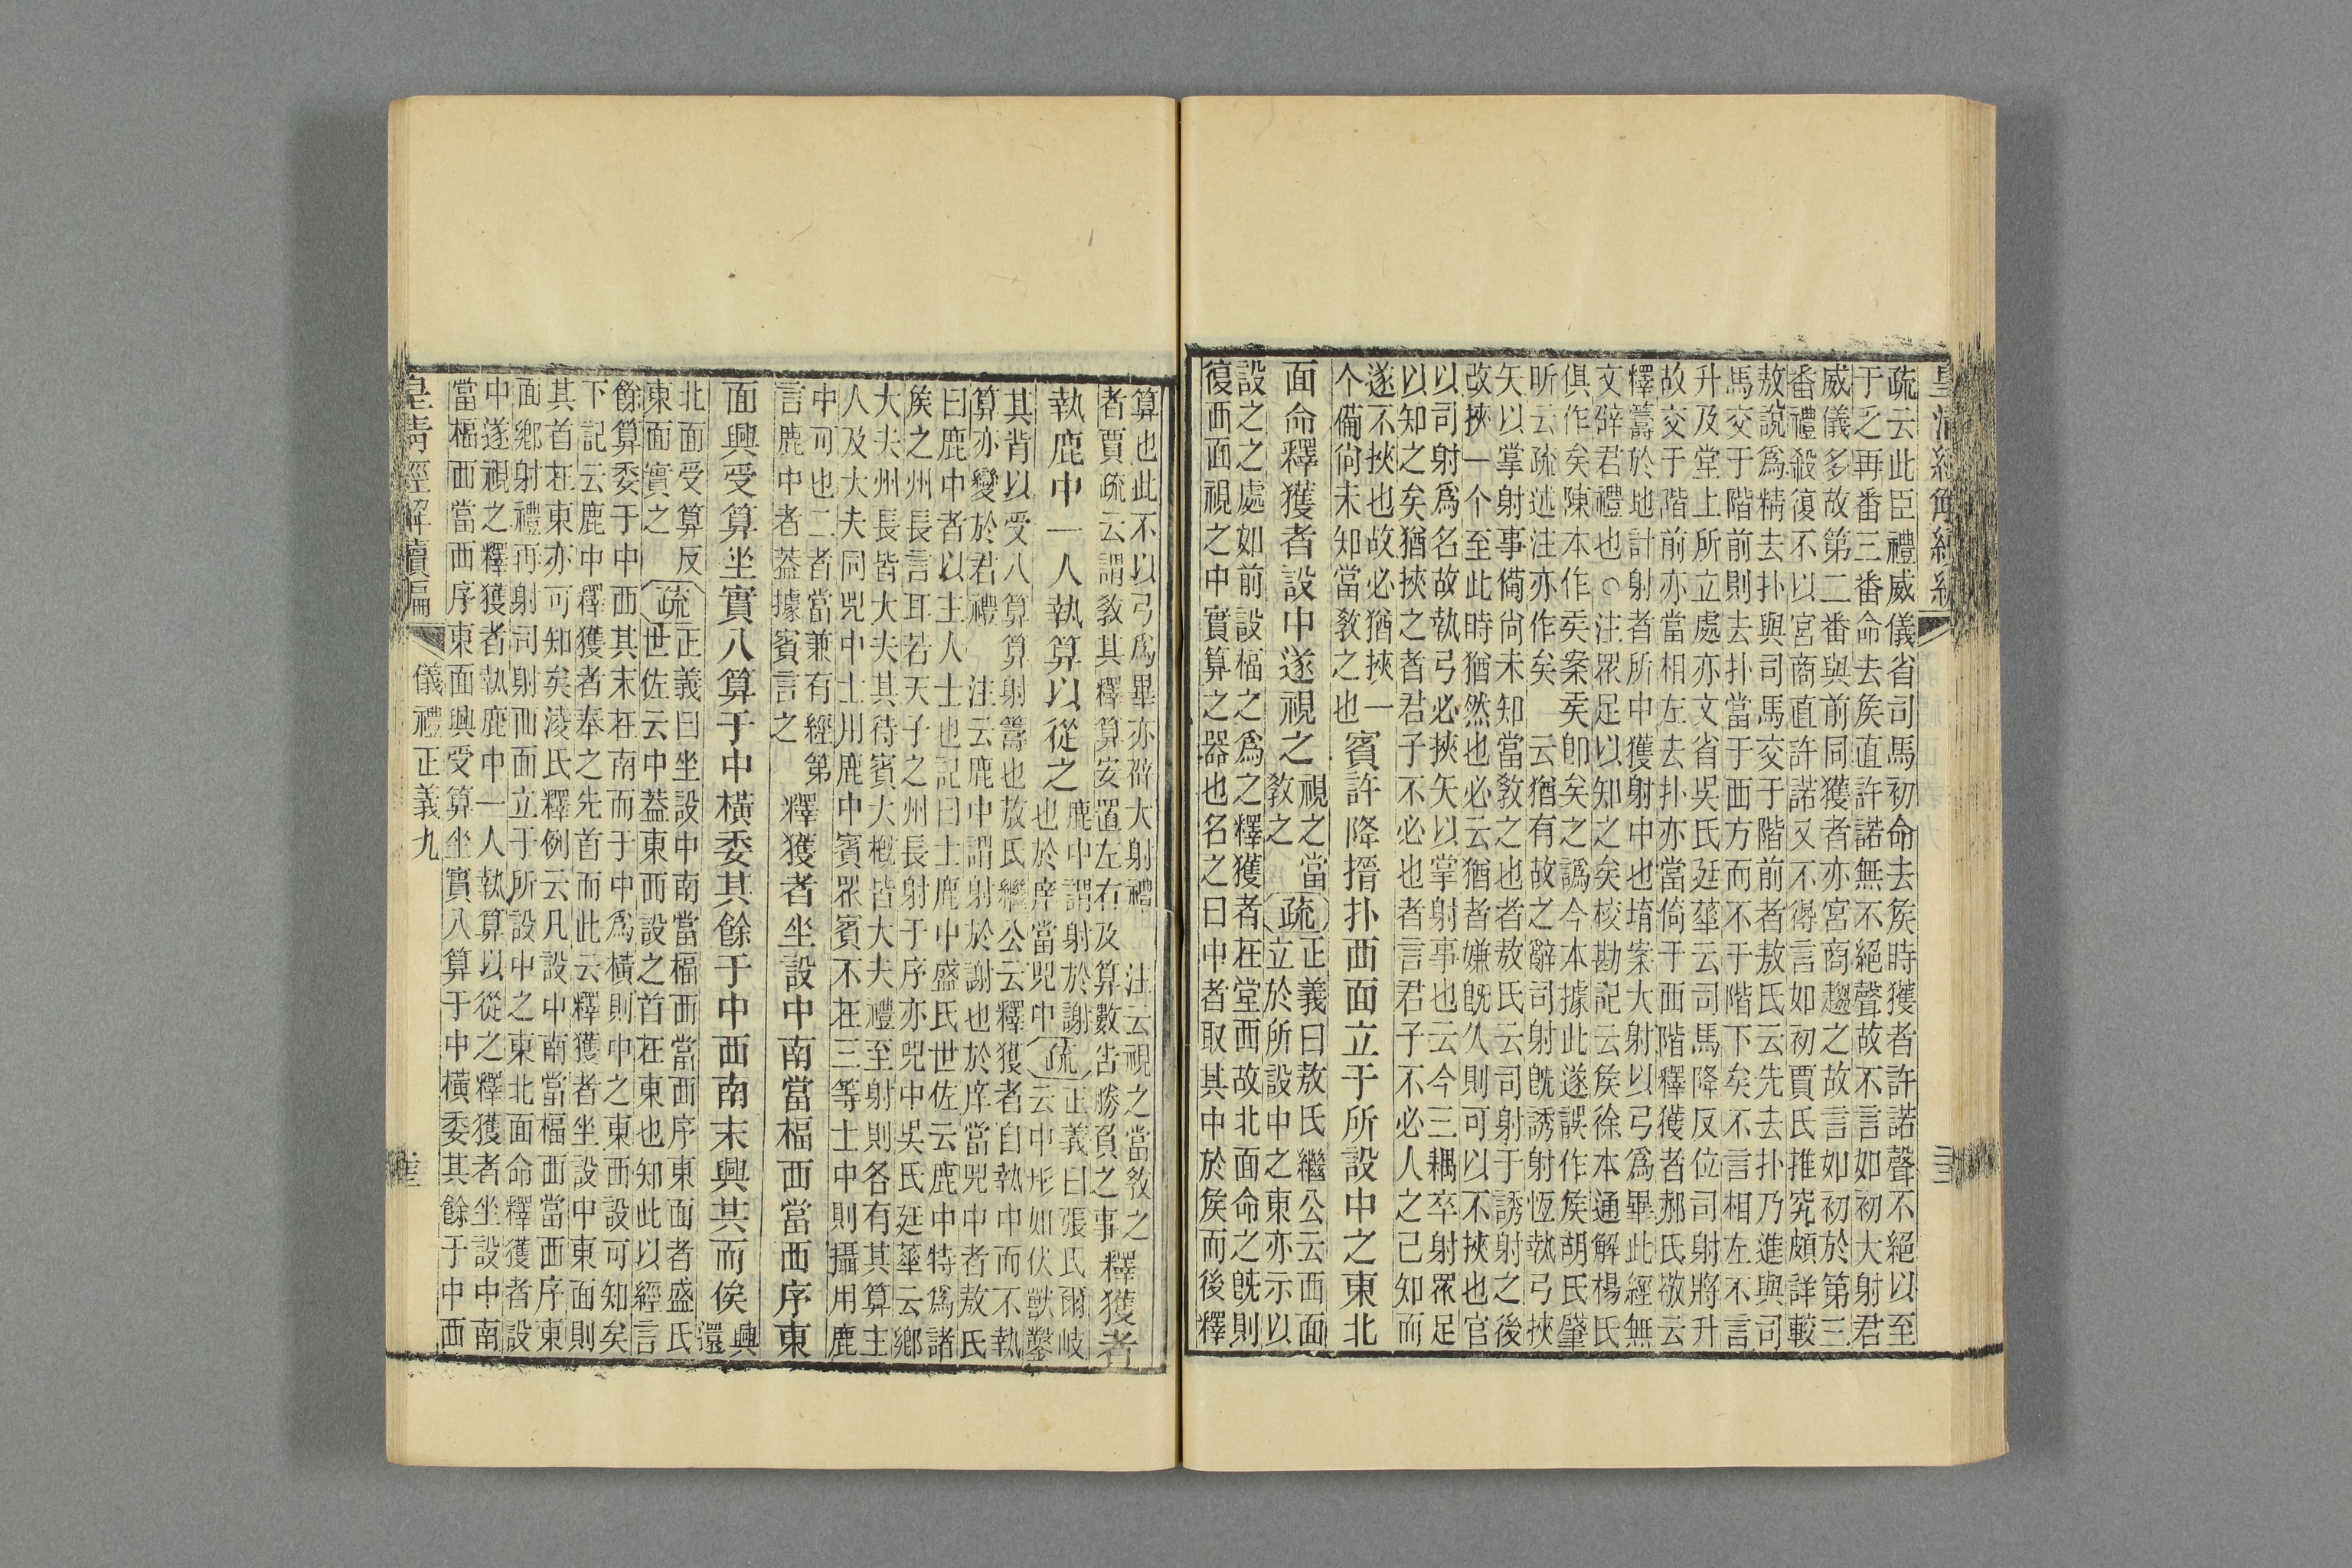 皇清經解續編
疏云此臣禮威儀省司馬初命去矦時獲者許諾聲不絕以至
于乏再番三番命去矦直許諾無不絕聲故不言如初大射君
威儀多故第二番與前同獲者亦宮商趨之故言如初於第三
番禮殺復不以宮商直許諾又不得言如初賈氏推究頗詳較
敖說爲精去扑與司馬交于階前者敖氏云先去扑乃進與司
馬交于階前則去扑當于西方而不于階下矣不言相左不言
升及堂上所立處亦文省吳氏廷華云司馬降反位司射將升
故交于階前亦當相左去扑亦當倚于西階釋獲者郝氏敬云
釋籌於地計射者所中獲射中也堉案大射以弓爲畢此經無
文辟君禮也○注眾足以知之矣校勘記云矦徐本通解楊氏
俱作矣陳本作矦案矦卽矣之譌今本據此遂誤作矦胡氏肇
昕云疏述注亦作矣 云猶有故之辭司射旣誘射恆執弓挾
矢以掌射事備尙未知當敎之也者敖氏云司射于誘射之後
改挾一个至此時猶然也必云猶者嫌旣久則可以不挾也官
以司射爲名故執弓必挾矢以掌射事也云今三耦卒射眾足
以知之矣猶挾之者君子不必也者言君子不必人之己知而
遂不挾也故必猶挾一
个備尙未知當敎之也
賓許降搢扑西面立于所設中之東北
面命釋獲者設中遂視之
視之當
敎之
疏
正義曰敖氏繼公云西面
立於所設中之東亦示以
設之之處如前設楅之爲之釋獲者在堂西故北面命之旣則
復西面視之中實算之器也名之曰中者取其中於矦而後釋
算也此不以弓爲畢亦辟大射禮 注云視之當敎之
者賈疏云謂敎其釋算安置左右及算數吿勝負之事
釋獲者
執鹿中一人執算以從之
鹿中謂射於謝
也於庠當兕中
疏
正義曰張氏爾岐
云中形如伏獸鑿
其背以受八算算射籌也敖氏繼公云釋獲者自執中而不執
算亦變於君禮 注云鹿中謂射於謝也於庠當兕中者敖氏
曰鹿中者以主人士也記曰士鹿中盛氏世佐云鹿中特爲諸
矦之州長言耳若天子之州長射于序亦兕中吳氏廷華云鄉
大夫州長皆大夫其待賓大槪皆大夫禮至射則各有其算主
人及大夫同兕中士用鹿中賓眾賓不在三等士中則攝用鹿
中可也二者當兼有經第
言鹿中者葢據賓言之
釋獲者坐設中南當楅西當西序東
面興受算坐實八算于中橫委其餘于中西南末興共而俟
興
還
北面受算反
東面實之
疏
正義曰坐設中南當楅西當西序東面者盛氏
世佐云中葢東面設之首在東也知此以經言
餘算委于中西其末在南而于中爲橫則中之東西設可知矣
下記云鹿中釋獲者奉之先首而此云釋獲者坐設中東面則
其首在東亦可知矣淩氏釋例云凡設中南當楅西當西序東
面鄉射禮再射司射西面立于所設中之東北面命釋獲者設
中遂視之釋獲者執鹿中一人執算以從之釋獲者坐設中南
當楅西當西序東面興受算坐實八算于中橫委其餘于中西
皇淸經解續編
儀禮正義九